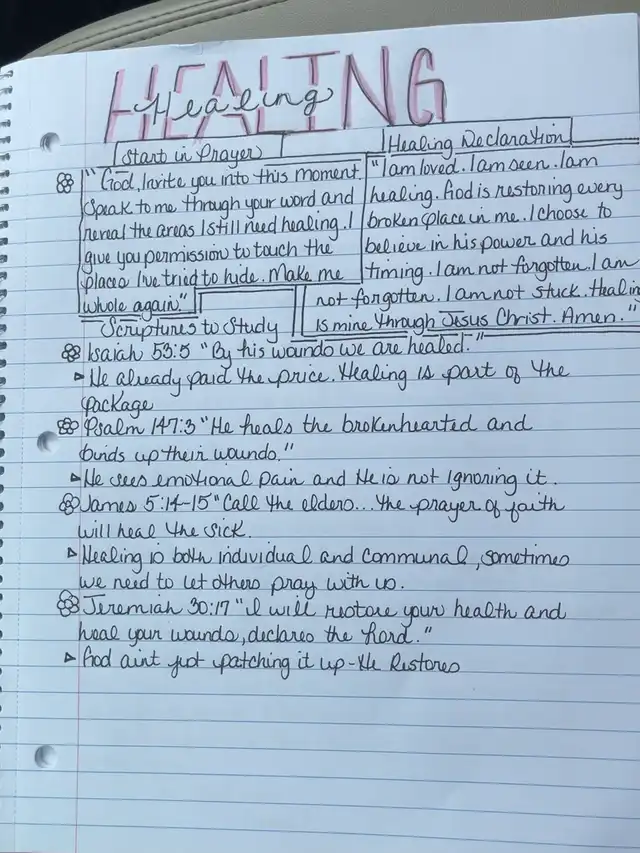 HEALING
Healing
Start in Prayer
"God, Invite you into this moment.
Speak to me through your word and
reveal the areas I still need healing. I
give you permission to touch the
places I've tried to hide. Make me
whole again."
Healing Declaration
"I am loved. I am seen. I am
healing. God is restoring every
broken place in me. I choose to
believe in his power and his
timing. I am not forgotten. I am
not forgotten. I am not stuck. Healin
is mine through Jesus Christ. Amen."
Scriptures to Study
Isaiah 53:5 "By his wounds we are healed."
He already paid the price. Healing is part of the
package
Psalm 147:3 "He heals the brokenhearted and
binds up their wounds."
He sees emotional pain and He is not ignoring it.
James 5:14-15 "Call the elders... the prayer of faith
will heal the sick.
Healing is both individual and communal, sometimes
we need to let others pray with us.
Jeremiah 30:17 "I will restore your health and
heal your wounds, declares the Lord."
God aint just patching it up - He Restores